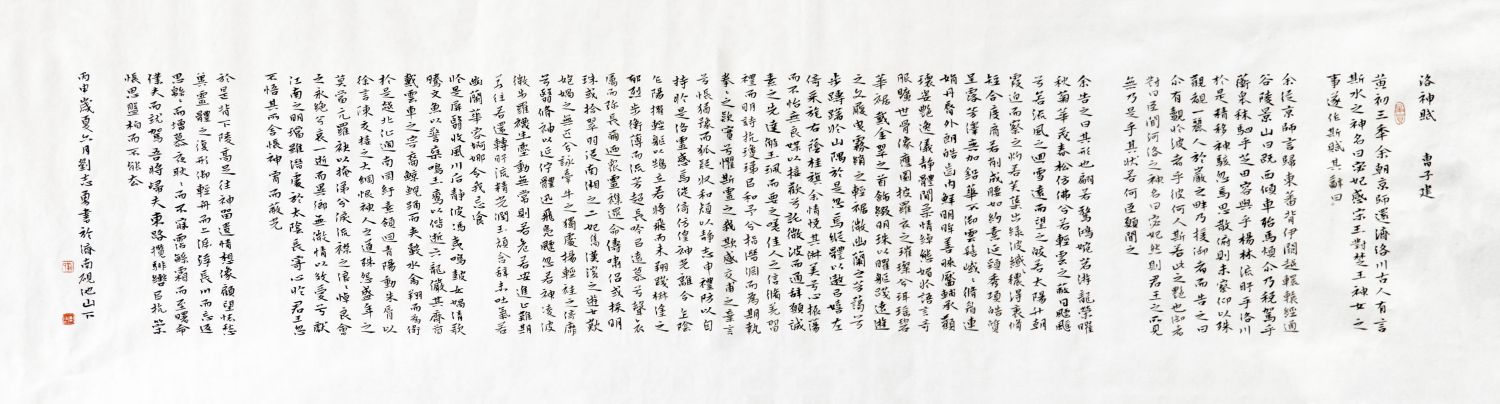 洛神賦 曹子建
黄初三年余朝京師還濟洛川古人有言
斯水之神名曰宓妃感宋玉對楚王神女之
事遂作斯賦其辭曰
余從京師言歸東藩背伊闕越轘轅經通
谷陵景山日既西傾車殆馬煩尒乃税駕乎
蘅皋秣駟乎芝田容與乎楊林流盻乎洛川
於是精移神駭忽焉思散俯則未察仰以殊
觀覩一麗人於巖之畔乃援御者而告之曰
尒有覿於彼者乎彼何人斯若此之艷也御者
對曰臣聞河洛之神名曰宓妃然則君王之所見
無乃是乎其狀若何臣願聞之
余告之曰其形也翩若驚鴻婉若游龍榮曜
秋菊華茂春松仿佛兮若輕雲之蔽日飄飄
兮若流風之迴雪遠而望之皎若太陽升朝
霞迫而察之灼若芙蕖出淥波襛纖得衷脩
短合度肩若削成腰如約素延頸秀項皓質
呈露芳澤無加鉛華不御雲髻峨峨脩眉連
娟丹脣外朗皓齒内鮮明眸善睞靨輔承顴
瓌姿艷逸儀靜體閑柔情綽態媚於語言奇
服曠世骨像應圖披羅衣之璀璨兮珥瑶碧
華裾戴金翠之首飾綴明珠以耀軀踐遠遊
之文履曳霧綃之輕裾微幽蘭之芳藹兮
步踟躕於山隅於是忽焉縱體以遨以嬉左
倚采旄右蔭桂旗余情悅其淑美兮心振蕩
而不怡無良媒以接歡兮託微波而通辭願誠
素之先達解玉珮而要之嗟佳人之信脩羌習
禮而明詩抗瓊珶以和予兮指潛淵而為期執
拳拳之款實兮懼斯靈之我欺感交甫之棄言
兮悵猶豫而狐疑收和顏以靜志申禮防以自
持於是洛靈感焉徙倚彷徨神光離合乍陰
乍陽擢輕軀以鶴立若將飛而未翔踐椒塗之
郁烈步衡薄而流芳超長吟以遠慕兮聲哀
厲而弥長尒迺衆靈雜遝命儔嘯侣或采明
珠或拾翠羽從南湘之二妃携漢濱之遊女歎
匏媧之無匹兮詠牽牛之獨處揚輕袿之倚靡
兮翳脩袖以延佇體迅飛鳧飄忽若神凌波
微步羅襪生塵動無常則若危若安進止難期
若往若還轉盻流精光潤玉顏含辭未吐氣若
幽蘭華容婀娜令我忘飡
於是屏翳收風川后靜波馮夷鳴鼓女媧清歌
騰文魚以警乘鳴玉鸞以偕逝六龍儼其齊首
載雲車之容裔鯨鯢踊而夾轂水禽翔而為衛
於是越北沚過南岡紆素領迴清陽動朱脣以
徐言陳交接之大綱恨神人之道殊怨盛年之
莫當亢羅袂以掩涕兮淚流襟之浪浪悼良會
之永絶兮哀一逝而異鄉無微情以效愛兮獻
江南之明璫雖潛處於太陰長寄心於君王忽
不悟其所舍悵神宵而蔽光
於是背下陵高足往神留遺情想像顧望懷愁
冀靈體之復形御輕舟而上遡浮長川而忘返
思緜緜而增慕夜耿耿而不寐霑繁霜而至曙命
僕夫而就駕吾將歸夫東路攬騑轡以抗策
悵盤桓而不能去
丙申歲夏六月劉志勇書於濟南硯池山下